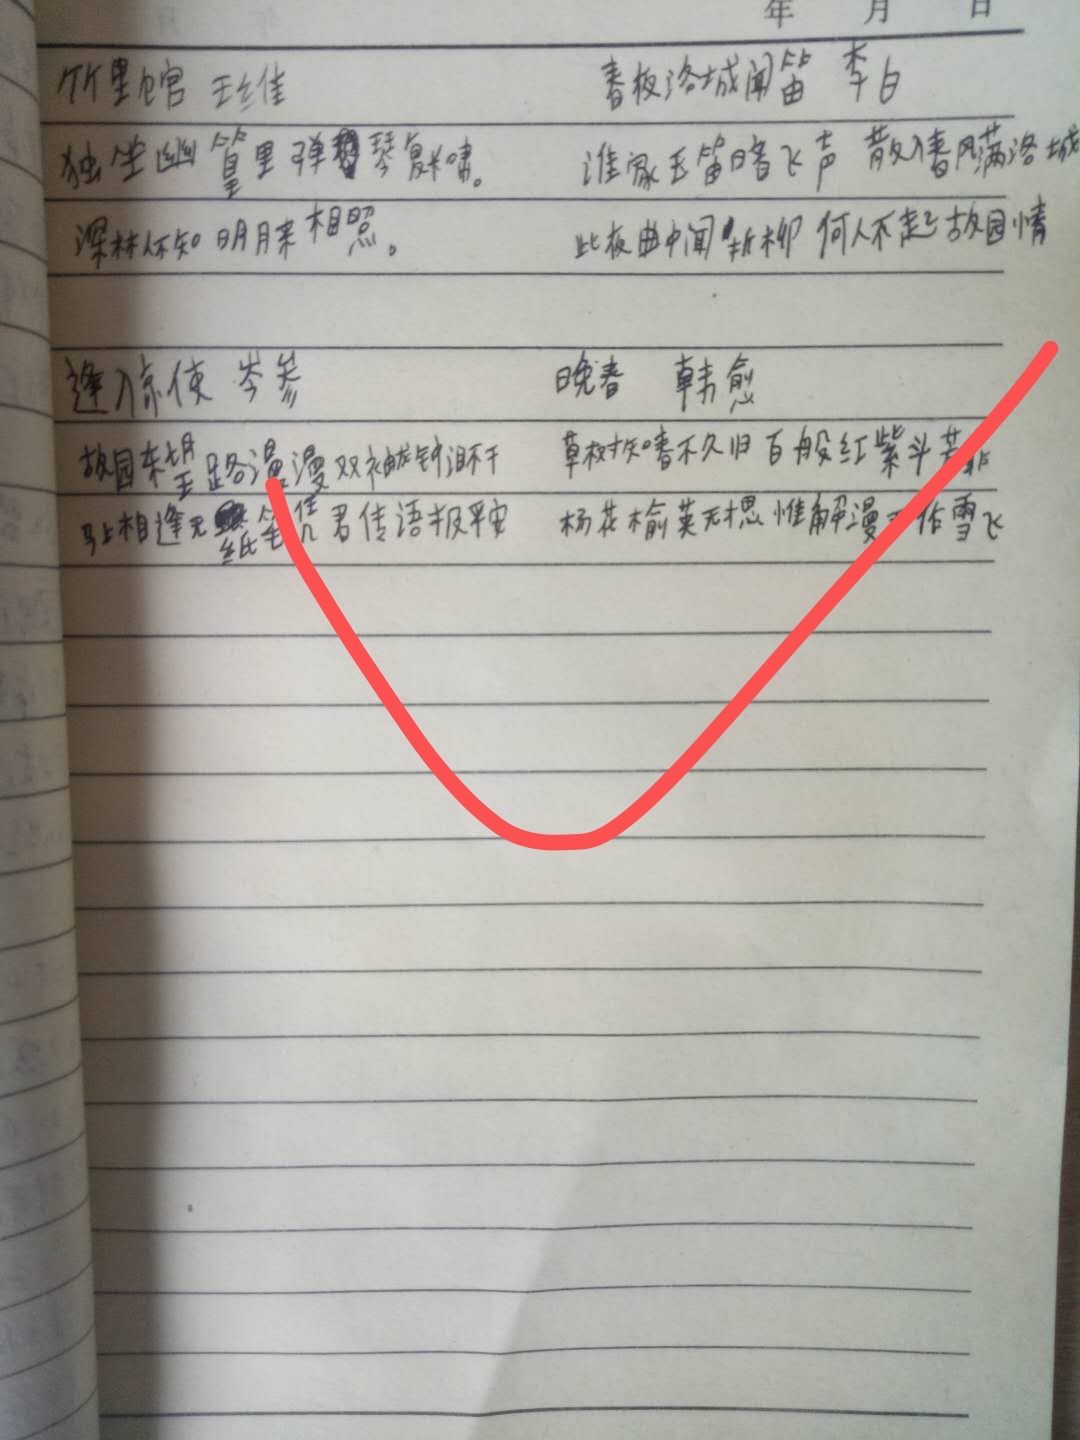 年 月 日
竹里馆 王维
独坐幽篁里弹琴复长啸。
深林人不知 明月来相照。
春夜洛城闻笛 李白
谁家玉笛暗飞声 散入春风满洛城
此夜曲中闻折柳 何人不起故园情
逢入京使 岑参
故园东望路漫漫双袖龙钟泪不干
马上相逢无纸笔凭君传语报平安
晚春 韩愈
草树知春不久归百般红紫斗芳菲
杨花榆荚无才思惟解漫天作雪飞